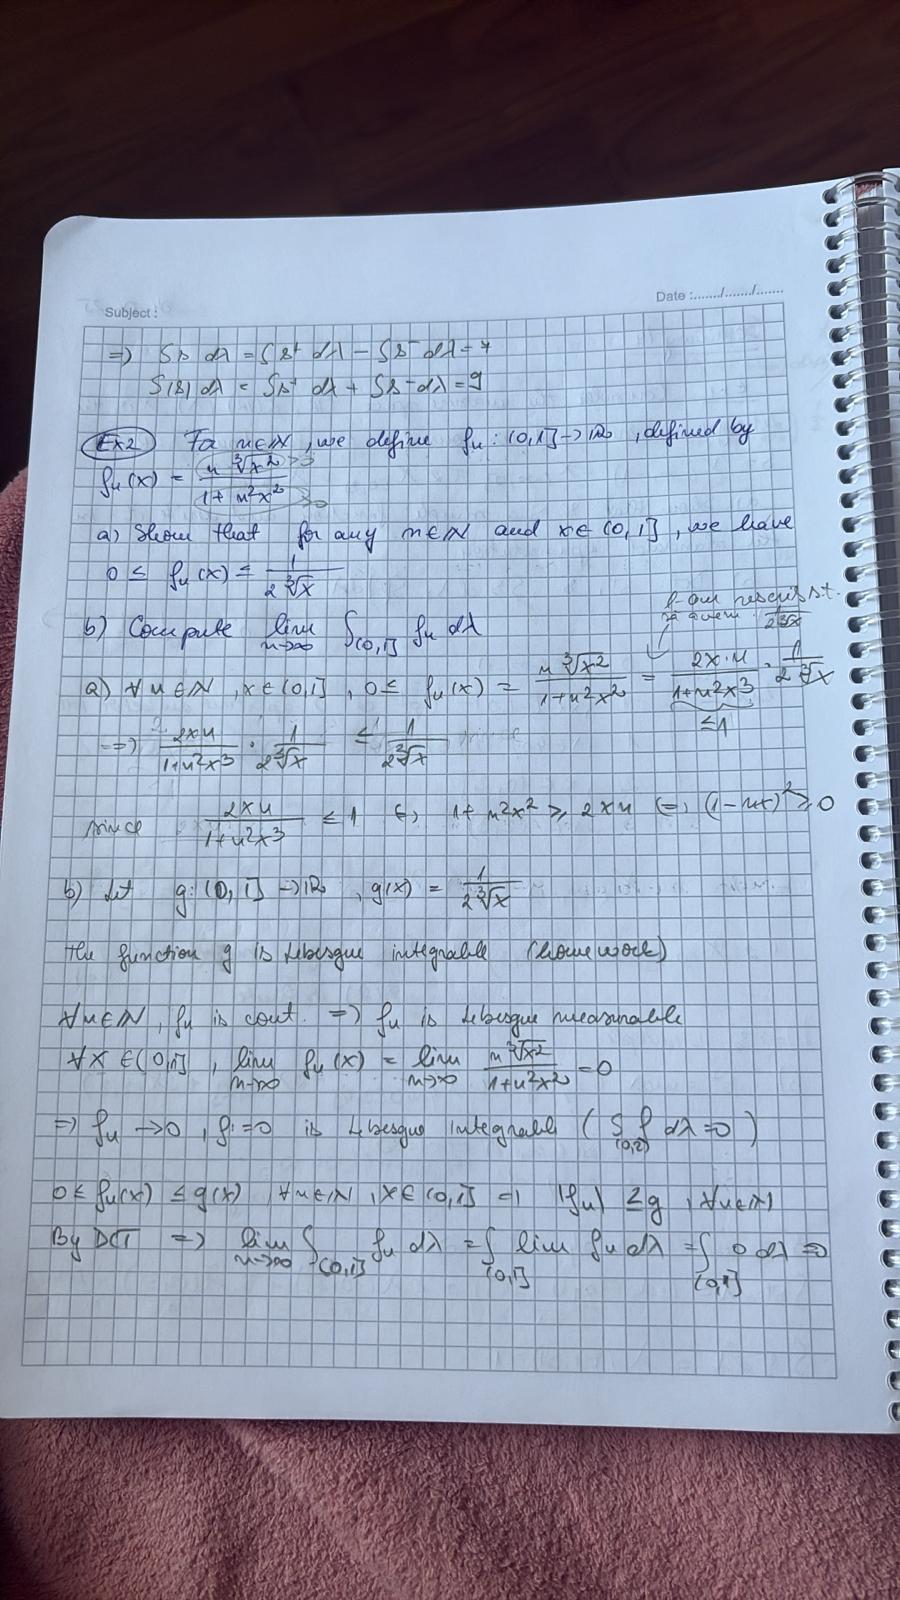 Subject :
Date :......./......./.......
=> ∫s dλ = ∫s⁺ dλ - ∫s⁻ dλ = 7
∫|s| dλ = ∫s⁺ dλ + ∫s⁻ dλ = 9
Ex2 For n∈ℕ, we define fₙ : (0,1] → ℝ, defined by
fₙ(x) = n ∛x² >0 / 1 + n²x² >0
a) Show that for any n∈ℕ and x∈(0,1], we have
0 ≤ fₙ(x) ≤ 1 / 2∛x
b) Compute lim n→∞ ∫(0,1] fₙ dλ
l-am rescris s.t.
să avem 1 / 2∛x
a) ∀n∈ℕ, x∈(0,1], 0 ≤ fₙ(x) = n ∛x² / 1+n²x² = 2x·n / 1+n²x³ · 1 / 2∛x
≤1
=> 2xn / 1+n²x³ · 1 / 2∛x ≤ 1 / 2∛x
since 2xn / 1+n²x³ ≤ 1 (=) 1 + n²x² ≥ 2xn (=) (1-nx)² ≥ 0
b) Let g: (0,1] → ℝ, g(x) = 1 / 2∛x
The function g is Lebesgue integrable (homework)
∀n∈ℕ, fₙ is cont. => fₙ is Lebesgue measurable
∀x∈(0,1], lim n→∞ fₙ(x) = lim n→∞ n∛x² / 1+n²x² = 0
=> fₙ → 0, f=0 is Lebesgue integrable (∫(0,2) f dλ = 0)
0 ≤ fₙ(x) ≤ g(x), ∀n∈ℕ, x∈(0,1] => |fₙ| ≤ g, ∀n∈ℕ
By DCT => lim n→∞ ∫(0,1] fₙ dλ = ∫(0,1] lim fₙ dλ = ∫(0,1] 0 dλ = 0